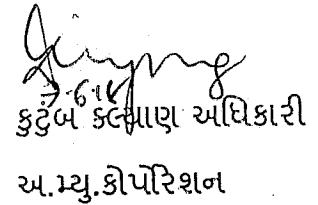 7-6-14
કુટુંબ કલ્યાણ અધિકારી
અ.મ્યુ.કોર્પોરેશન